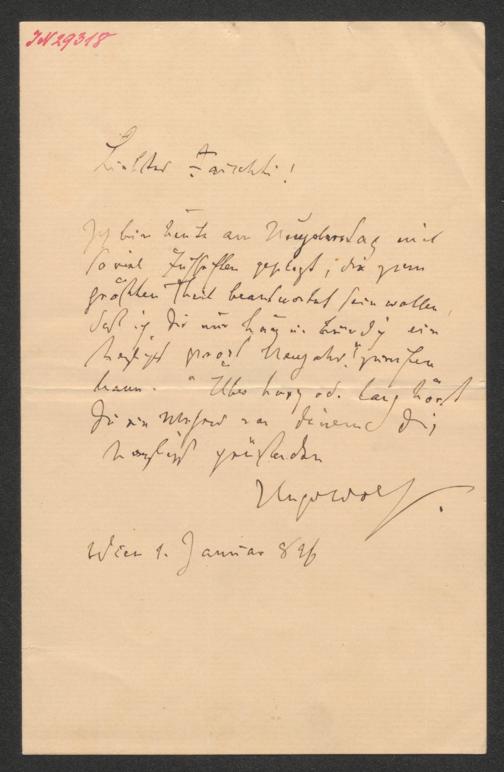 IN 29318
Liebster Faischti!
Ich bin heute am Neujahrstag mit
so viel Zuschriften geplagt, die zum
größten Theil beantwortet sein wollen,
daß ich Dir nur kurz u. bündig ein
herzlichst prosit Neujahr! zurufen
kann. Über kurz od. lang hörst
Du ein Mehres von deinem Dich
herzlichst grüßenden
Hugo Wolf.
Wien 1. Januar 896